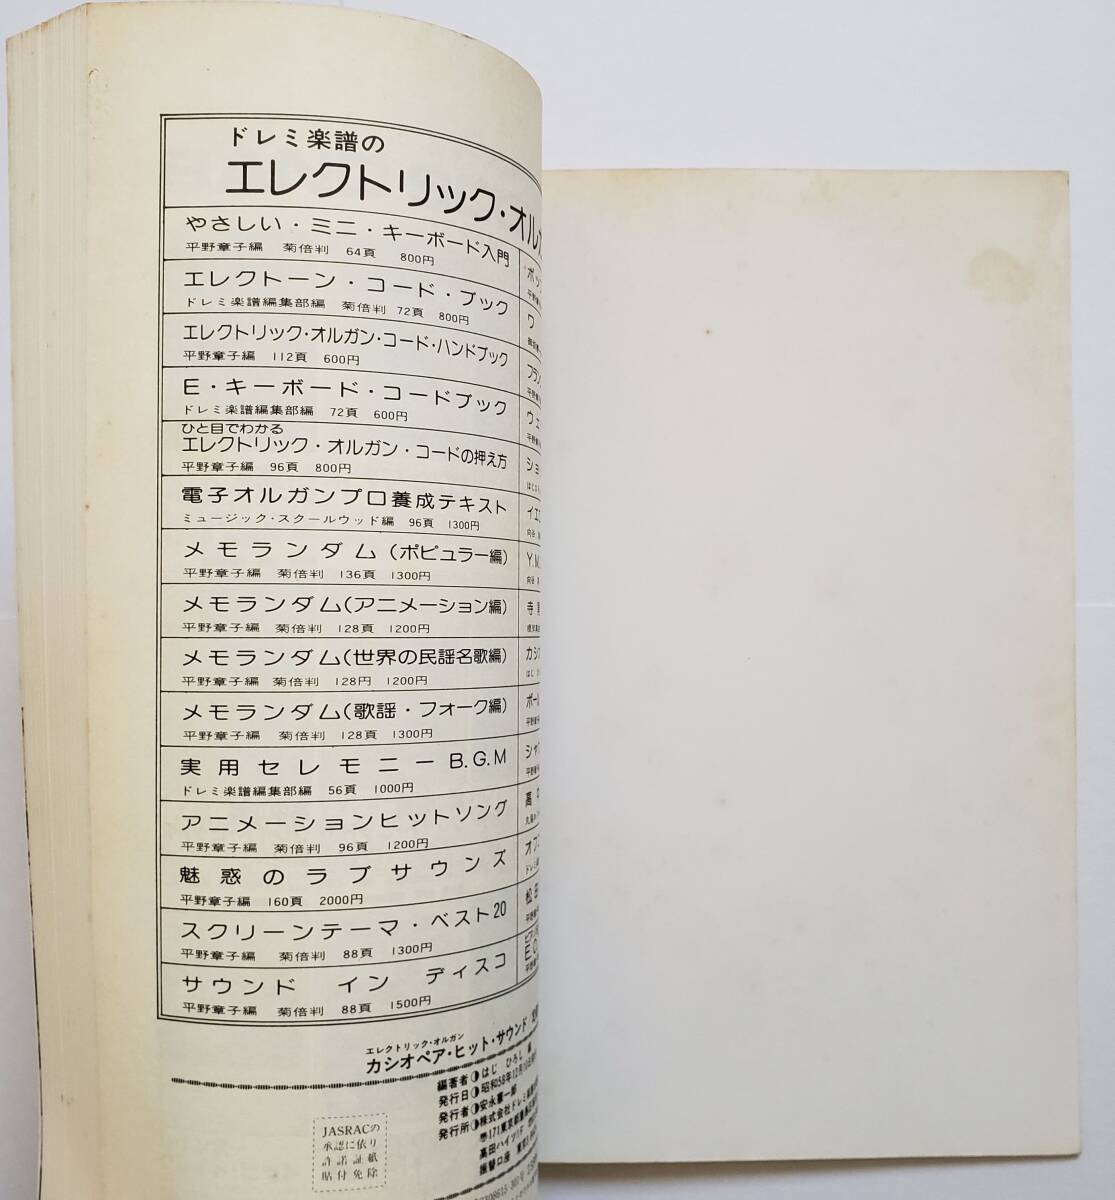 ドレミ楽譜の
エレクトリック・オルガ
やさしい・ミニ・キーボード入門
平野章子編 菊倍判 64頁 800円
エレクトーン・コード・ブック
ドレミ楽譜編集部編 菊倍判 72頁 800円
エレクトリック・オルガン・コード・ハンドブック
平野章子編 112頁 600円
E・キーボード・コードブック
ドレミ楽譜編集部編 72頁 600円
ひと目でわかる
エレクトリック・オルガン・コードの押え方
平野章子編 96頁 800円
電子オルガンプロ養成テキスト
ミュージック・スクールウッド編 96頁 1300円
メモランダム(ポピュラー編)
平野章子編 菊倍判 136頁 1300円
メモランダム(アニメーション編)
平野章子編 菊倍判 128頁 1200円
メモランダム(世界の民謡名歌編)
平野章子編 菊倍判 128円 1200円
メモランダム(歌謡・フォーク編)
平野章子編 菊倍判 128頁 1300円
実用セレモニーB.G.M
ドレミ楽譜編集部編 56頁 1000円
アニメーションヒットソング
平野章子編 菊倍判 96頁 1200円
魅惑のラブサウンズ
平野章子編 160頁 2000円
スクリーンテーマ・ベスト20
平野章子編 菊倍判 88頁 1300円
サウンド イン ディスコ
平野章子編 菊倍判 88頁 1500円
ポッ
ワ
フラン
ウェ
ショ
イエ
向谷
Y.M.
向谷
寺
カシオ
はじ
ポール
シャ
高
オフ
松田
エレクトリック・オルガン
カシオペア・ヒット・サウンド
編著者 はじ ひろし 編
発行日 昭和58年12月10日
発行者 安永震一郎
発行所 株式会社ドレミ
〒171東京都豊島区
高田ハイツ1F
振替口座 東京
JASRACの
承認に依り
許諾証紙
貼付免除